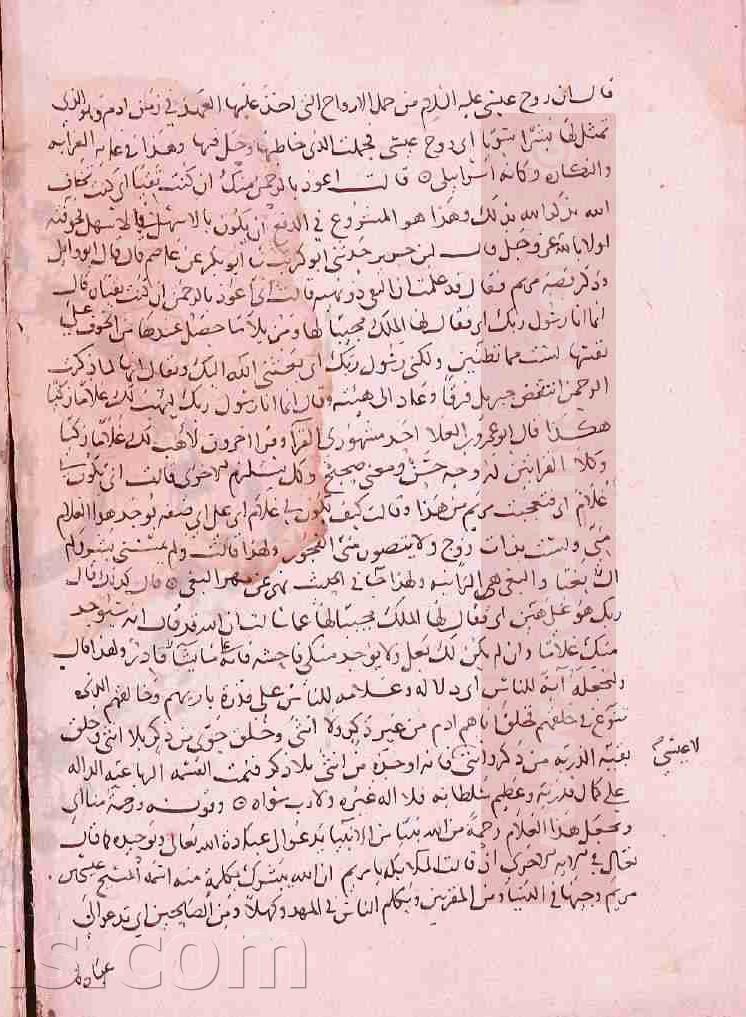 قال ان روح عيسى عليه السلام من جملة الارواح التى اخذ عليها العهد في زمن ادم وهو الذي
تمثل لها بشرا سويا اى روح عيسى فحملت الذى خاطبها وحل فيها وهذا في غاية الغرابة
والنكارة وكانه اسرائيلى ۞ قالت اعوذ بالرحمن منك ان كنت تقيا اى ان كنت تخاف
الله تذكيرا له بذلك وهذا هو المشروع في الدفع ان يكون بالاسهل فالاسهل فخوفته
اولا بالله عز وجل قال ابن جرير حدثني ابو كريب ثنا ابو بكر عن عاصم قال قال ابو وائل
وذكر قصة مريم فقال قد علمت ان التقى ذو نهية قالت انى اعوذ بالرحمن ان كنت تقيا قال
انما انا رسول ربك اى فقال لها الملك مجيبا لها ومزيلا ما حصل عندها من الخوف على
نفسها لست مما تظنين ولكنى رسول ربك اى بعثنى الله اليك ويقال انها لما ذكرت
الرحمن انتفض جبريل فرقا وعاد الى هيئته وقال انما انا رسول ربك ليهب لك غلاما زكيا
هكذا قرا ابو عمرو بن العلا احد مشهورى القرا وقرا اخرون لاهب لك غلاما زكيا
وكلا القراتين له وجه حسن ومعنى صحيح وكل تستلزم الاخرى قالت انى يكون لى
غلام اى فتعجبت مريم من هذا وقالت كيف يكون لى غلام اى على اى صفة يوجد هذا الغلام
منى ولست بذات زوج ولا يتصور منى الفجور ولهذا قالت ولم يمسسنى بشر ولم
اك بغيا والبغى هى الزانية ولهذا جا في الحديث نهى عن مهر البغى ۞ قال كذلك قال
ربك هو على هين اى فقال لها الملك مجيبا لها عما سالت ان الله قد قال انه سيوجد
منك غلاما وان لم يكن لك بعل ولا يوجد منك فاحشة فانه على ما يشا قادر ولهذا قال
ولنجعله آية للناس اى دلالة وعلامة للناس على قدرة باريهم وخالقهم الذى
تنوع في خلقهم فخلق اباهم ادم من غير ذكر ولا انثى وخلق حوى من ذكر بلا انثى وخلق
بقية الذرية من ذكر وانثى فانه اوجده من انثى بلا ذكر فتمت القسمة الرباعية الدالة
الا عيسى
على كمال قدرته وعظيم سلطانه فلا اله غيره ولا رب سواه ۞ وقوله ورحمة منا اى
ونجعل هذا الغلام رحمة من الله نبيا من الانبيا يدعو الى عبادة الله تعالى وتوحيده كما قال
تعالى في الاية الاخرى اذ قالت الملايكة يا مريم ان الله يبشرك بكلمة منه اسمه المسيح عيسى ابن
مريم وجيها في الدنيا ومن المقربين ويكلم الناس في المهد وكهلا ومن الصالحين اى يدعو الى
عبادة
ns.com